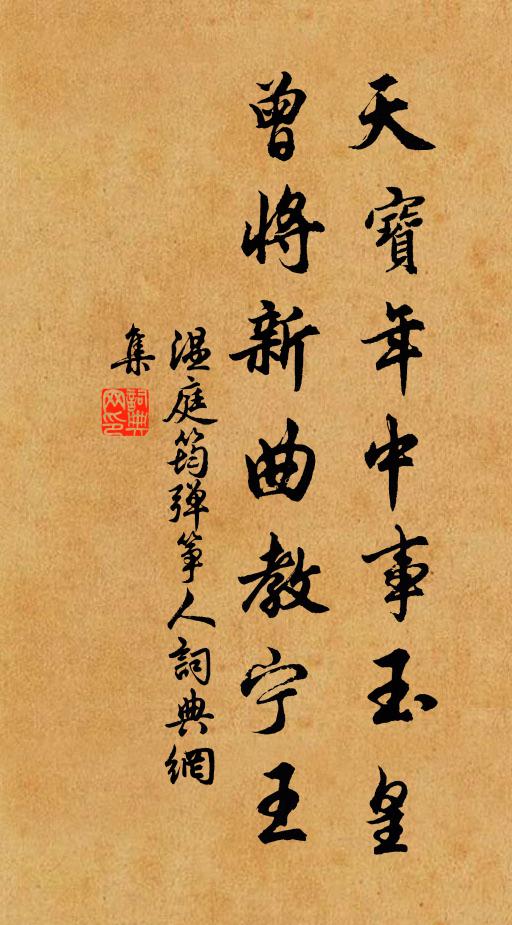 天寶年中事玉皇
曾將新曲教宁王
温庭筠彈筝人詞典網
集
詞典
网印